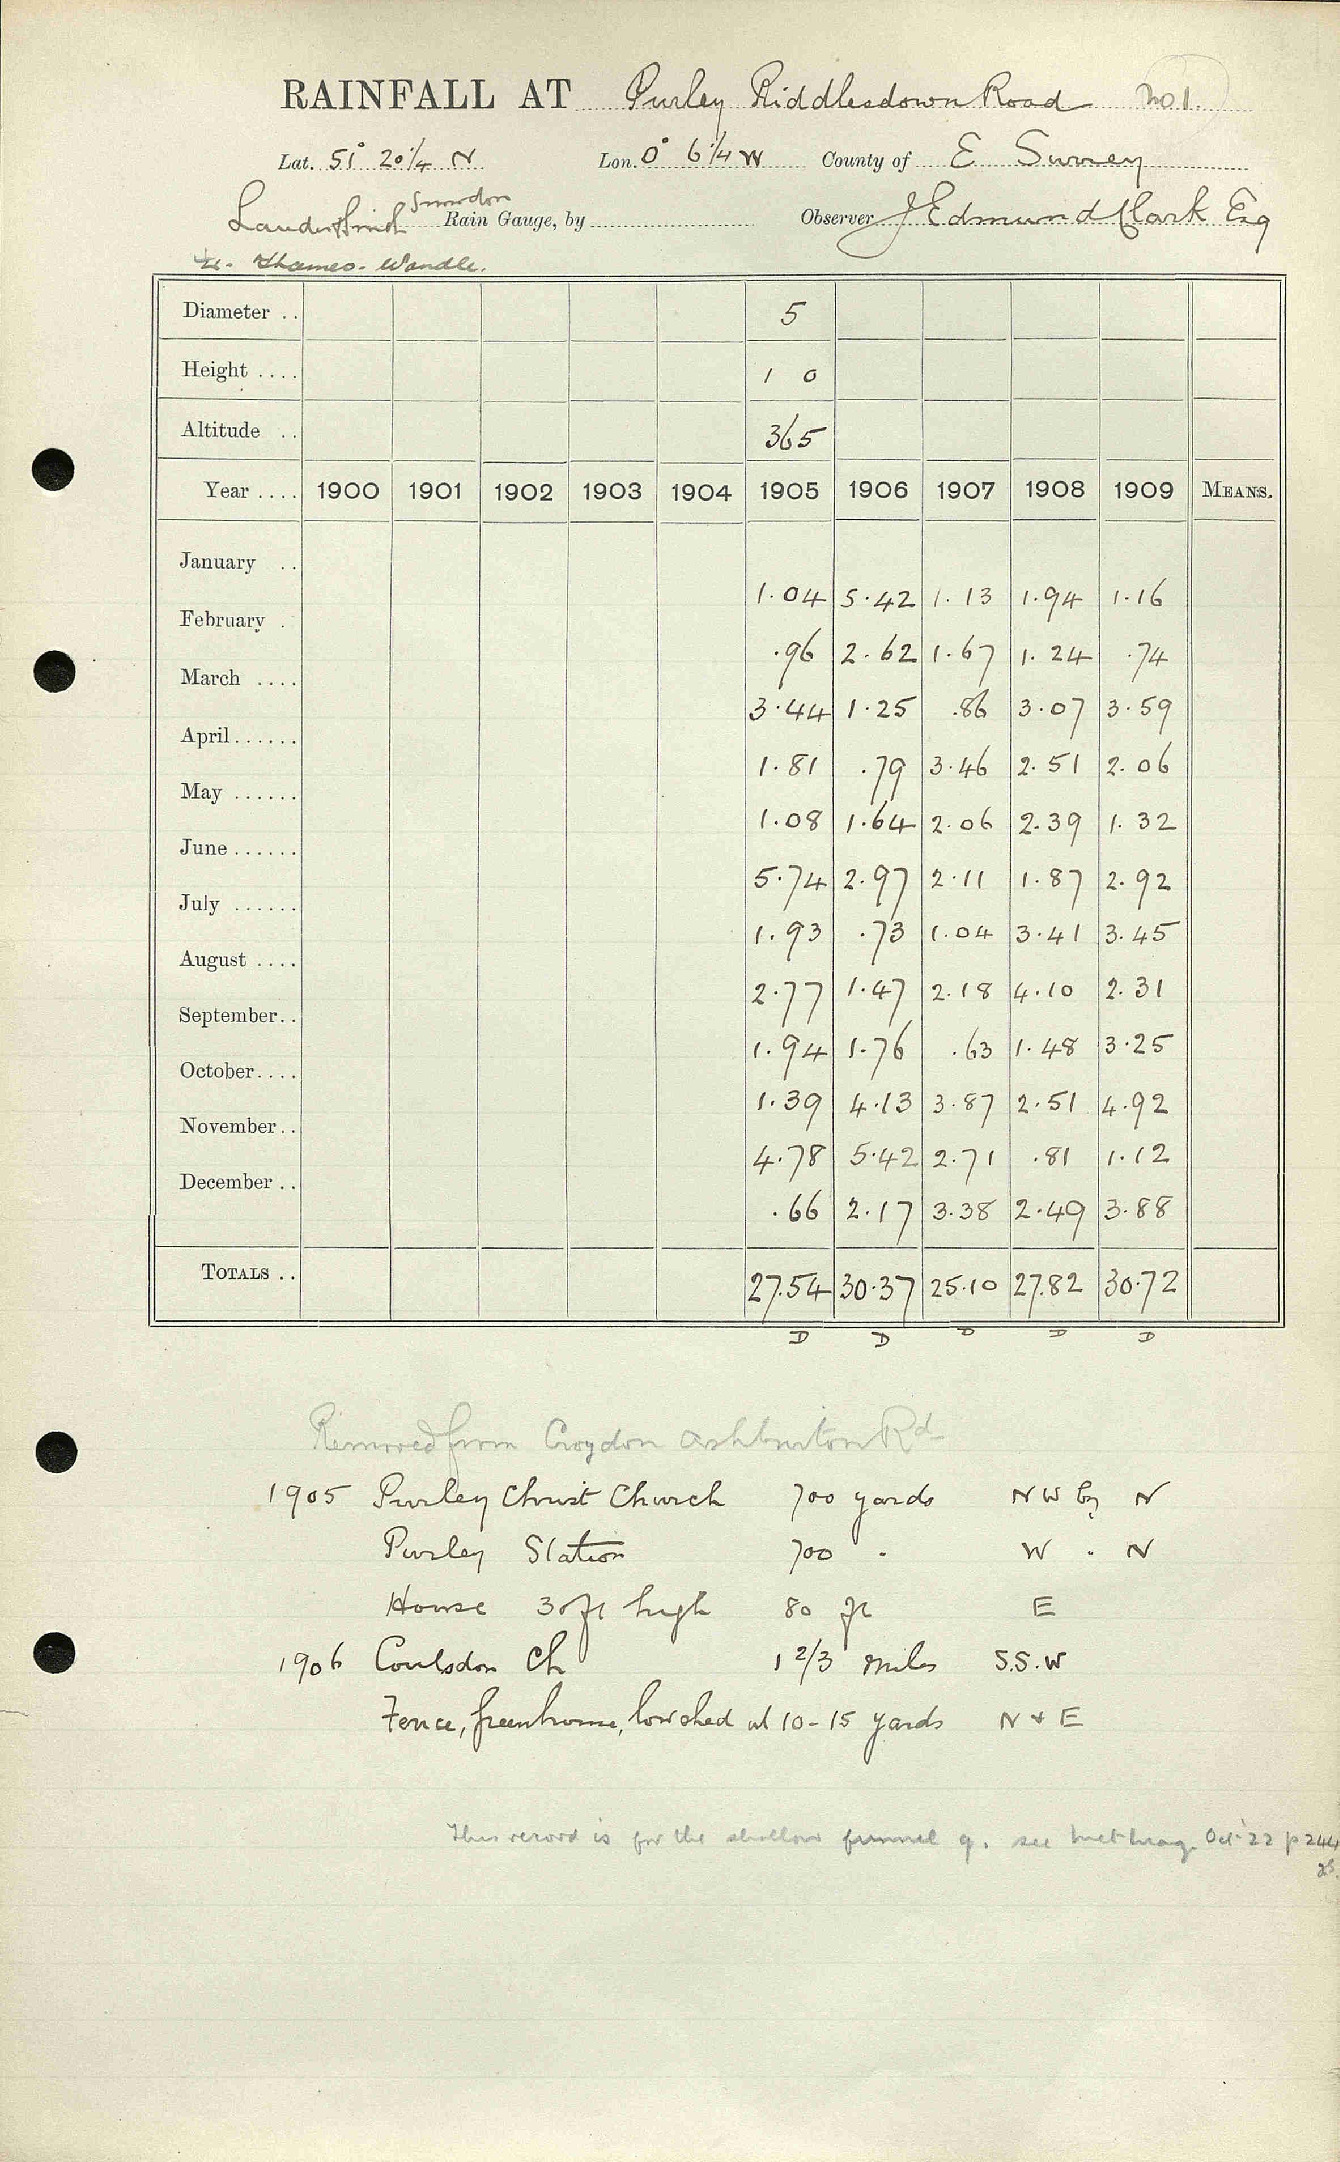 RAINFALL AT Purley Riddlesdown Road No 1.
Lat. 51° 20 1/4 N Lon. 0° 6 1/4 W County of E Surrey
Snowdon Rain Gauge, by Observer J Edmund Clark Esq
Thames - Wandle.
Diameter .. 5
Height .... 1 0
Altitude .. 365
Year .... 1900 1901 1902 1903 1904 1905 1906 1907 1908 1909 MEANS.
January .. 1.04 5.42 1.13 1.94 1.16
February . .96 2.62 1.67 1.24 .74
March .... 3.44 1.25 .86 3.07 3.59
April...... 1.81 .79 3.46 2.51 2.06
May ...... 1.08 1.64 2.06 2.39 1.32
June ...... 5.74 2.97 2.11 1.87 2.92
July ...... 1.93 .73 1.04 3.41 3.45
August .... 2.77 1.47 2.18 4.10 2.31
September.. 1.94 1.76 .63 1.48 3.25
October.... 1.39 4.13 3.87 2.51 4.92
November.. 4.78 5.42 2.71 .81 1.12
December .. .66 2.17 3.38 2.49 3.88
TOTALS .. 27.54 30.37 25.10 27.82 30.72
D D D D D
Removed from Croydon Ashburton Rd
1905 Purley Christ Church 700 yards NW by N
Purley Station 700 " W " N
House 30 ft high 80 ft E
1906 Coulsdon Ch 1 2/3 miles S.S.W
Fence, greenhouse, low shed at 10-15 yards N & E
This record is for the shallow funnel g. see Met Mag. Oct '22 p 244